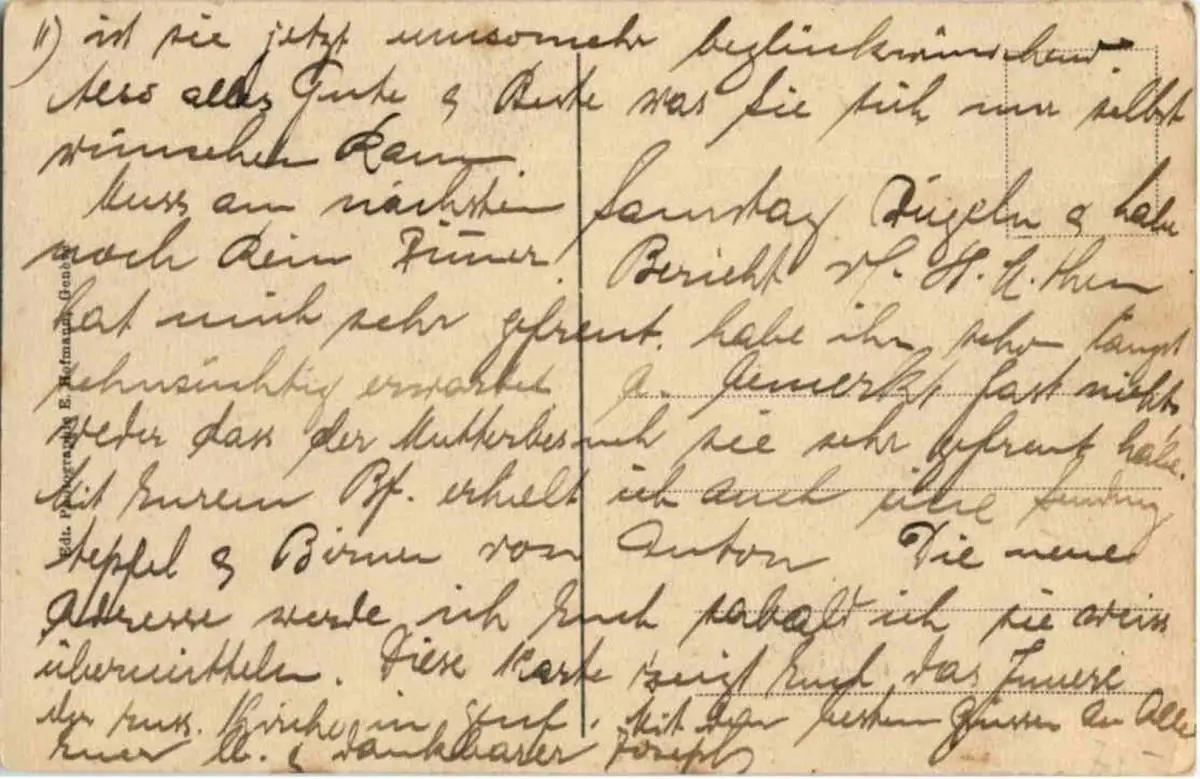 II) ist sie jetzt umsomehr beglückwünschend.
Also alles Gute & Beste was Sie sich nur selbst
wünschen kann.
Muss am nächsten Samstag & habe
noch kein Zimmer. Bericht v.
hat mich sehr gefreut. habe ihn scho längst
sehnsüchtig erwartet gemerkt fast nichts
weder dass der Mutterbesuch sie sehr gefreut habe.
Mit Eurem Bf. erhielt ich auch eine Sendung
Aepfel & Birnen von Anton. Die neue
Adresse werde ich Euch sobald ich sie weiss
übermitteln. Diese Karte zeigt Euch das Innere
der russ. Kirche in Genf. Mit den besten Grüssen an Alle
Euer lb. & dankbarer Joseph
Edt. Photographie E. Hofmann, Genève